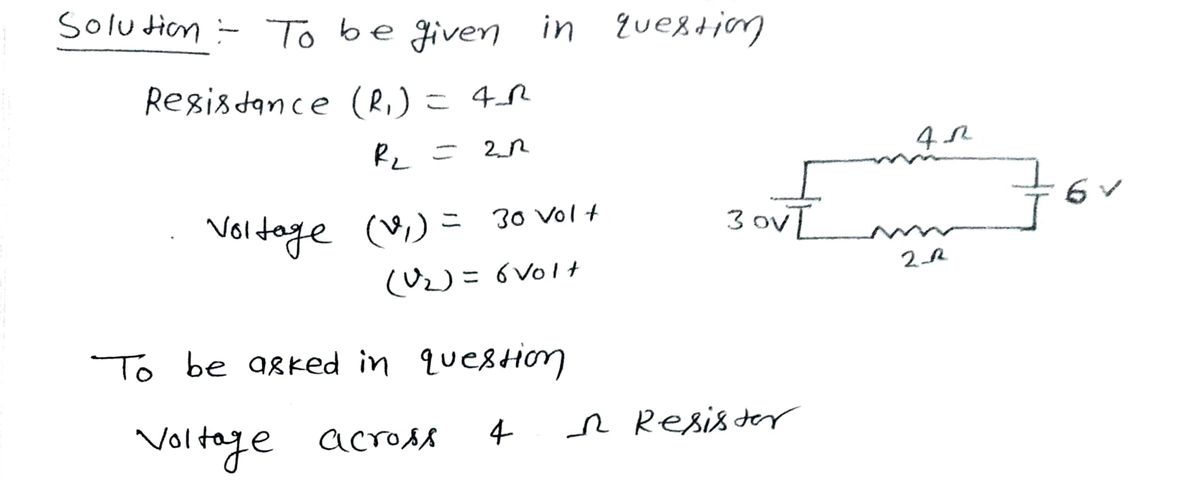 Solution :- To be given in question
Resistance (R₁) = 4Ω
R₂ = 2Ω
Voltage (V₁) = 30 Volt
(V₂) = 6 Volt
4Ω
30V
6V
2Ω
To be asked in question
Voltage across 4 Ω Resistor